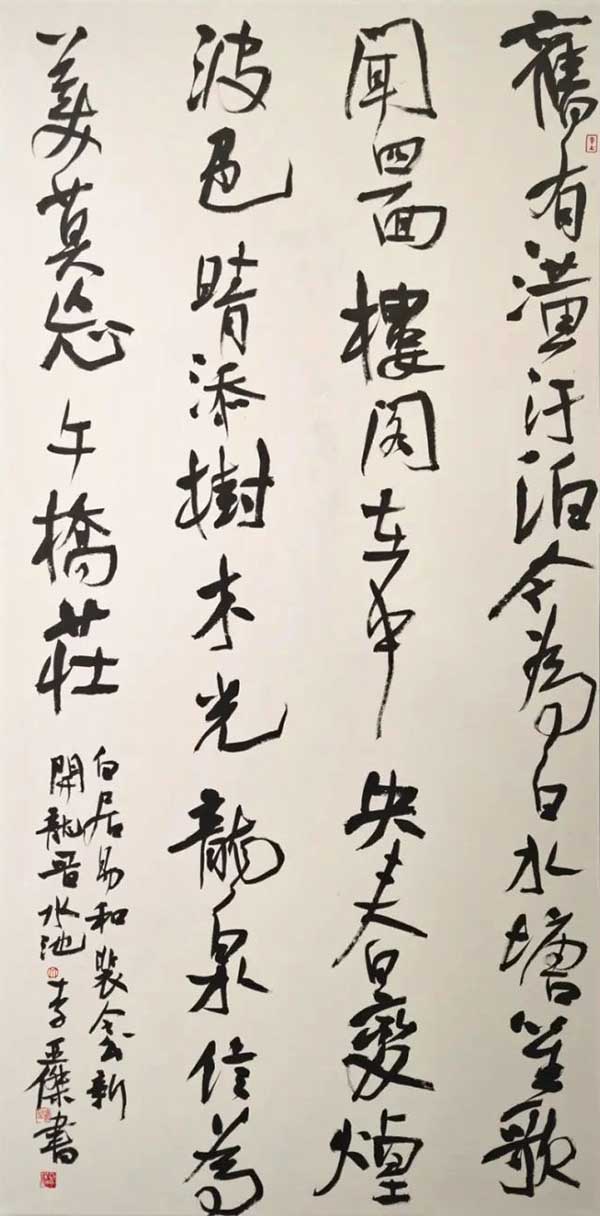 舊有潢汙泊今為白水塘笙歌
聞四面樓閣在中央春變煙
波色晴添樹木光龍泉信為
美莫忘午橋莊
白居易和裴令公新
開龍晉水池 李亞傑書